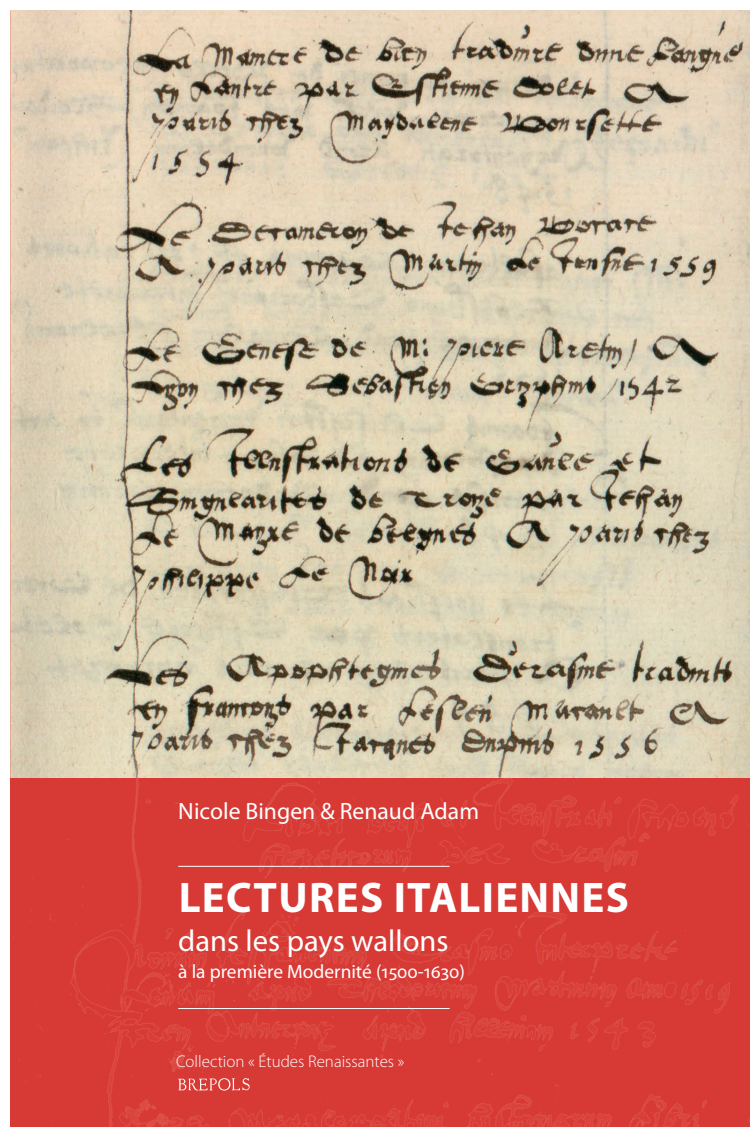 La Maniere de bien traduire dune Langue
en Lautre par Estienne Dolet A
paris chez Magdalene Boursette
1554
Le Decameron de Jehan Bocace
A paris chez Martin Le Jeusne 1559
Le Genese de M: piere Aretin / A
Lyon chez Sebastien Gryphius / 1542
Les Illustrations de Gaule et
Singularites de Troye par Jehan
Le Mayre de belges A paris chez
philippe Le Noir
Les Apophtegmes Derasme traduits
en francoys par Lesleu Macault A
paris chez Jacques Dupuis 1556
Nicole Bingen & Renaud Adam
LECTURES ITALIENNES
dans les pays wallons
à la première Modernité (1500-1630)
Collection « Études Renaissantes »
BREPOLS